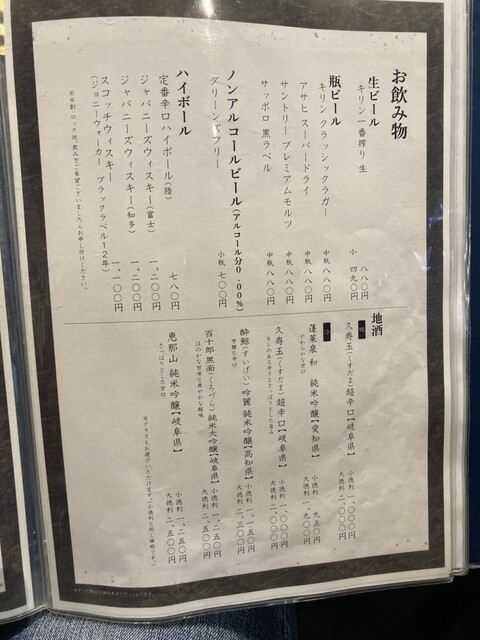 お飲み物
生ビール
キリン一番搾り 生 八八〇円
小 四九〇円
瓶ビール
キリン クラシックラガー 中瓶 八八〇円
アサヒ スーパードライ 中瓶 八八〇円
サントリー プレミアムモルツ 中瓶 八八〇円
サッポロ 黒ラベル 中瓶 八八〇円
ノンアルコールビール(アルコール分0.00%)
グリーンズフリー 小瓶 七〇〇円
ハイボール
定番辛口ハイボール(陸) 七八〇円
ジャパニーズウィスキー(富士) 一、二〇〇円
ジャパニーズウィスキー(知多) 一、二〇〇円
スコッチウィスキー 一、一〇〇円
(ジョニーウォーカー ブラックラベル12年)
地酒
久寿玉(くすだま)超辛口【岐阜県】 小徳利 一、〇〇〇円
大徳利 二、〇〇〇円
蓬莱泉 和 純米吟醸【愛知県】 小徳利 九五〇円
やわらかな甘口 大徳利 一、九〇〇円
久寿玉(くすだま)超辛口【岐阜県】 小徳利 一、〇〇〇円
キレのある辛さとさっぱりとした旨み 大徳利 二、〇〇〇円
酔鯨(すいげい)吟麗 純米吟醸【高知県】 小徳利 一、一五〇円
芳醇な辛口 大徳利 二、三〇〇円
百十郎 黒面(くろづら)純米大吟醸【岐阜県】 小徳利 一、二五〇円
ほのかな甘味と爽やかな酸味 大徳利 二、五〇〇円
恵那山 純米吟醸【岐阜県】 小徳利 一、二五〇円
さっぱりとした甘口 大徳利 二、五〇〇円
※グラスもお選びいただけます。(小徳利と同じ価格です。)